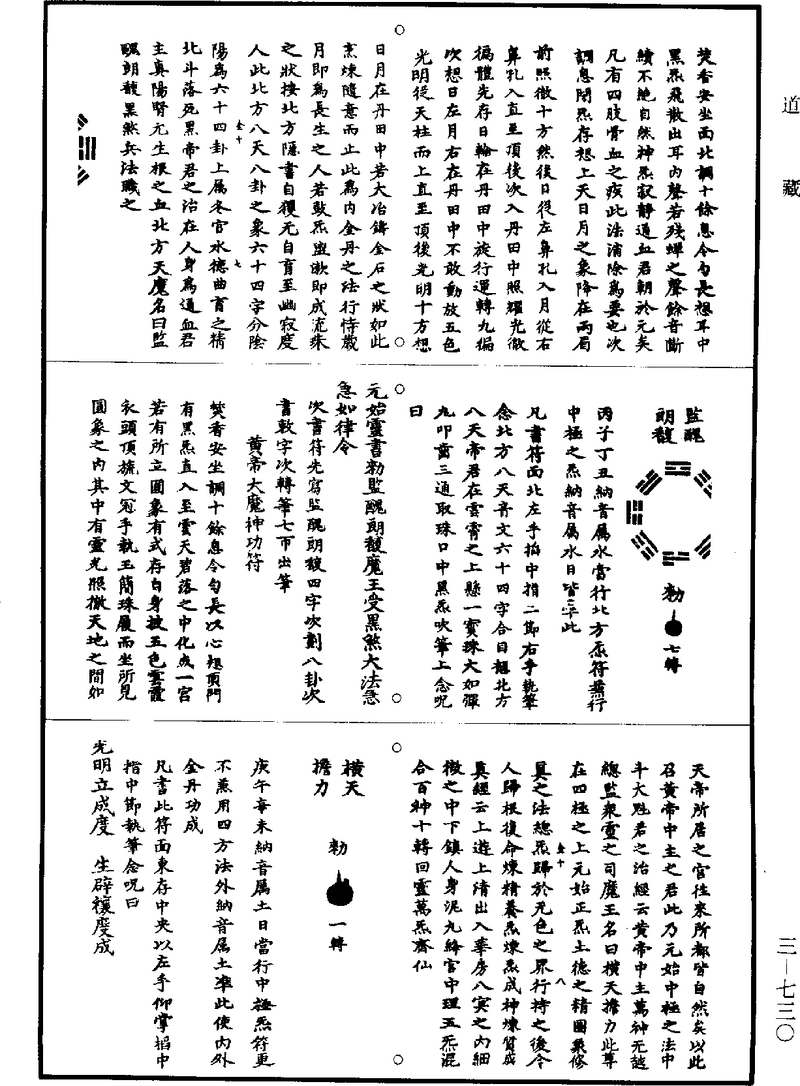 道藏
焚香安坐面北調十餘息令勻長想耳中
黑炁飛散出耳內聲若殘蟬之聲餘音斷
續不絕自然神炁寂靜通血君朝於元矣
凡有四肢骨血之疾此法消除為要也次
調息閉炁存想上天日月之象降在兩眉
前照徹十方然後日從左鼻孔入月從右
鼻孔入直至頂後次入丹田中照耀光徹
徧體先存日輪在丹田中旋行運轉九徧
次想日左月右在丹田中不敢動放五色
光明從天柱而上直至頂後光明十方想
日月在丹田中若大冶鑄金石之狀如此
烹煉隨意而止此為內金丹之法行持歲
月即為長生之人若發炁盥漱即成流珠
之狀接北方隱書自獲元自育至幽寂度
人此北方八天八卦之象六十四字分陰
陽為六十四卦上屬冬官水德曲育之精
北斗落死黑帝君之治在人身為通血君
主真陽腎元生根之血北方天魔名曰監
醜朗馥黑煞兵法職之
監醜
朗馥
勑
七轉
丙子丁丑納音屬水當行北方炁符兼行
中極之炁納音屬水日皆準此
凡書符面北左手掐中指二節右手執筆
念北方八天音文六十四字合目想北方
八天帝君在雲霄之上懸一寶珠大如彈
九叩齒三通取珠口中黑炁吹筆上念呪
曰
元始靈書勑監醜朗馥魔王受黑煞大法急
急如律令
次書符先寫監醜朗馥四字次劃八卦次
書敕字次轉筆七帀出筆
黃帝大魔神功符
焚香安坐調十餘息令勻長以心想頂門
有黑炁直入至雲天碧落之中化成一宮
若有所立圓象有式存自身披五色雲霞
衣頭頂梳文冠手執玉簡珠履而坐所見
圓象之內其中有靈光照徹天地之間如
天帝所居之宮往來所都皆自然矣以此
召黃帝中主之君此乃元始中極之法中
斗大魁君之治經云黃帝中主萬神无越
總監眾靈之司魔王名曰橫天擔力此尊
在四極之上元始正炁土德之精圓象修
真之法總炁歸於无色之界行持之後令
人歸根復命煉精養炁煉炁成神煉質成
真經云上遊上清出入華房八冥之內細
微之中下鎮人身泥丸絳宮中理五炁混
合百神十轉回靈萬炁齊仙
橫天
擔力
勑
一轉
庚午辛未納音屬土日當行中極炁符更
不兼用四方法外納音屬土準此使內外
金丹功成
凡書此符面東存中央以左手仰掌掐中
指中節執筆念呪曰
光明立成度　生辟穰慶成
三一七三〇